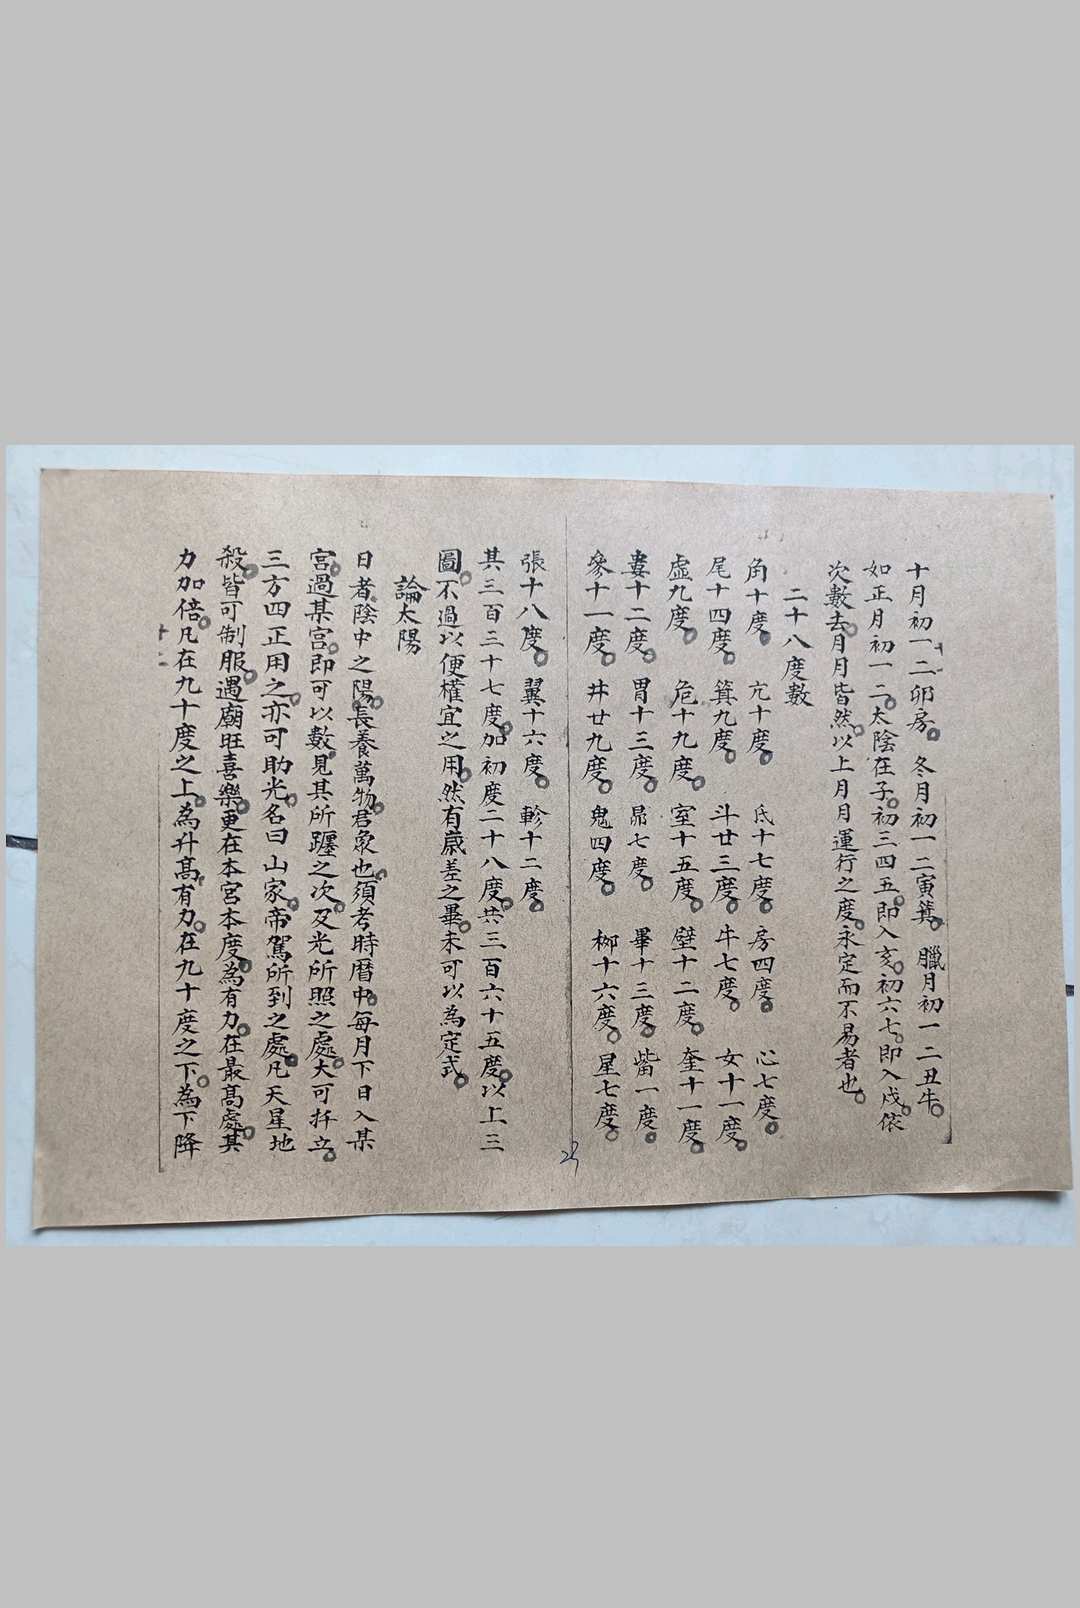 十月初一二卯房。冬月初一二寅箕。臘月初一二丑牛。
如正月初一二。太陰在子。初三四五。即入亥。初六七。即入戌。依
次數去。月月皆然。以上月月運行之度。永定而不易者也。
二十八度數
角十度。亢十度。氐十七度。房四度。心七度。
尾十四度。箕九度。斗廿三度。牛七度。女十一度。
虛九度。危十九度。室十五度。壁十二度。奎十一度。
婁十二度。胃十三度。昴七度。畢十三度。觜一度。
參十一度。井廿九度。鬼四度。柳十六度。星七度。
張十八度。翼十六度。軫十二度。
其三百三十七度。加初度二十八度。共三百六十五度。以上三
圖。不過以便權宜之用。然有歲差之畢。未可以為定式。
論太陽
日者陰中之陽。長養萬物。君象也。須考時曆中。每月下日入某
宮。過某宮。即可以數。見其所躔之次。及光所照之處。大可扦立。
三方四正用之。亦可助光。名曰山家。帝駕所到之處。凡天星地
殺。皆可制服。遇廟旺喜樂。更在本宮本度。為有力。在最高處。其
力加倍。凡在九十度之上。為升高。有力。在九十度之下。為下降